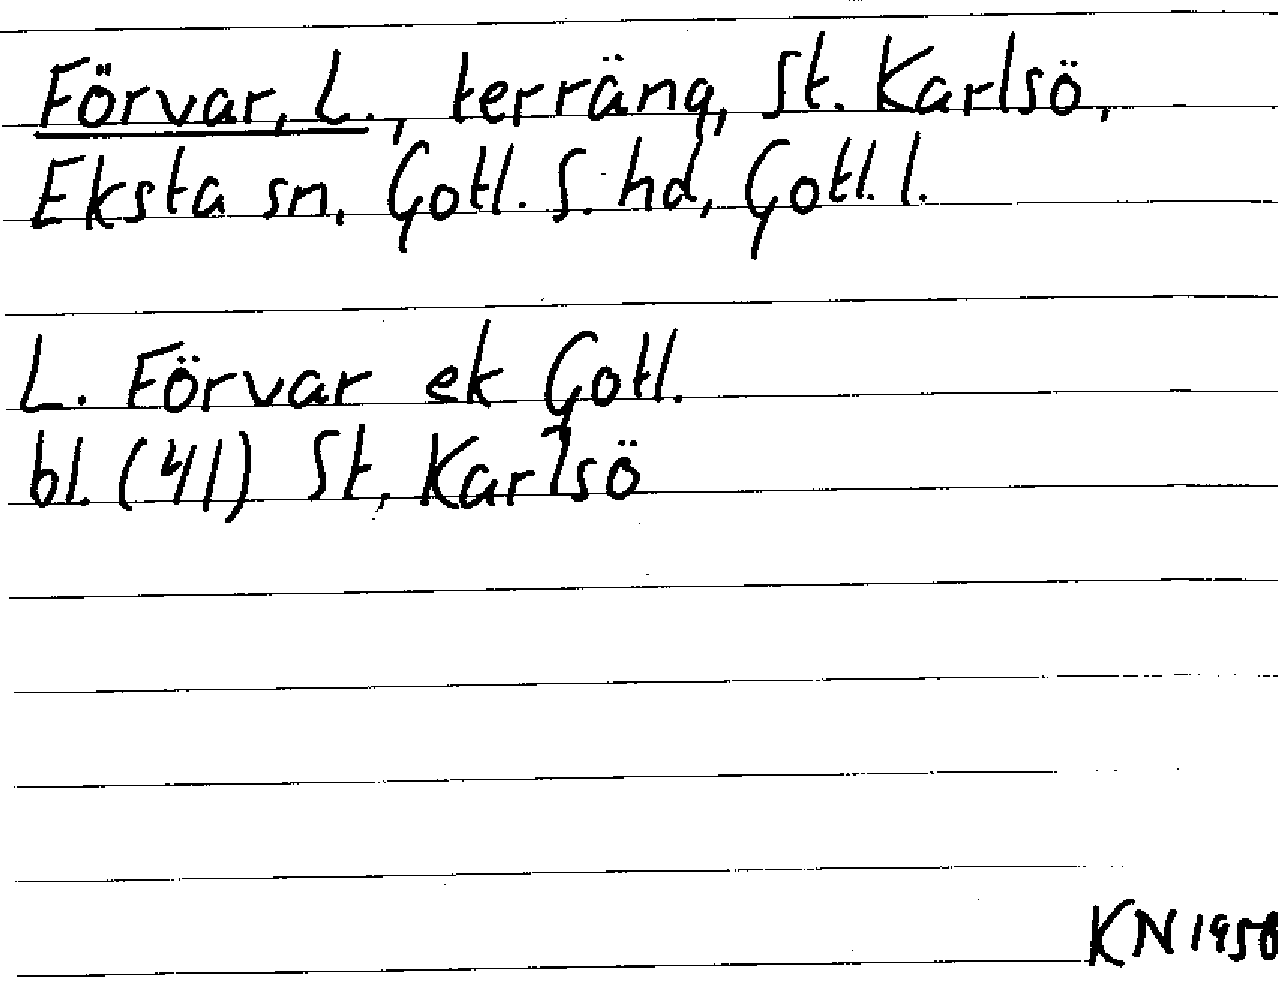 Förvar, L., terräng, St. Karlsö,
Eksta sn, Gotl. S. hd, Gotl. l.
L. Förvar ek Gotl.
bl. (41) St. Karlsö
KN 1958